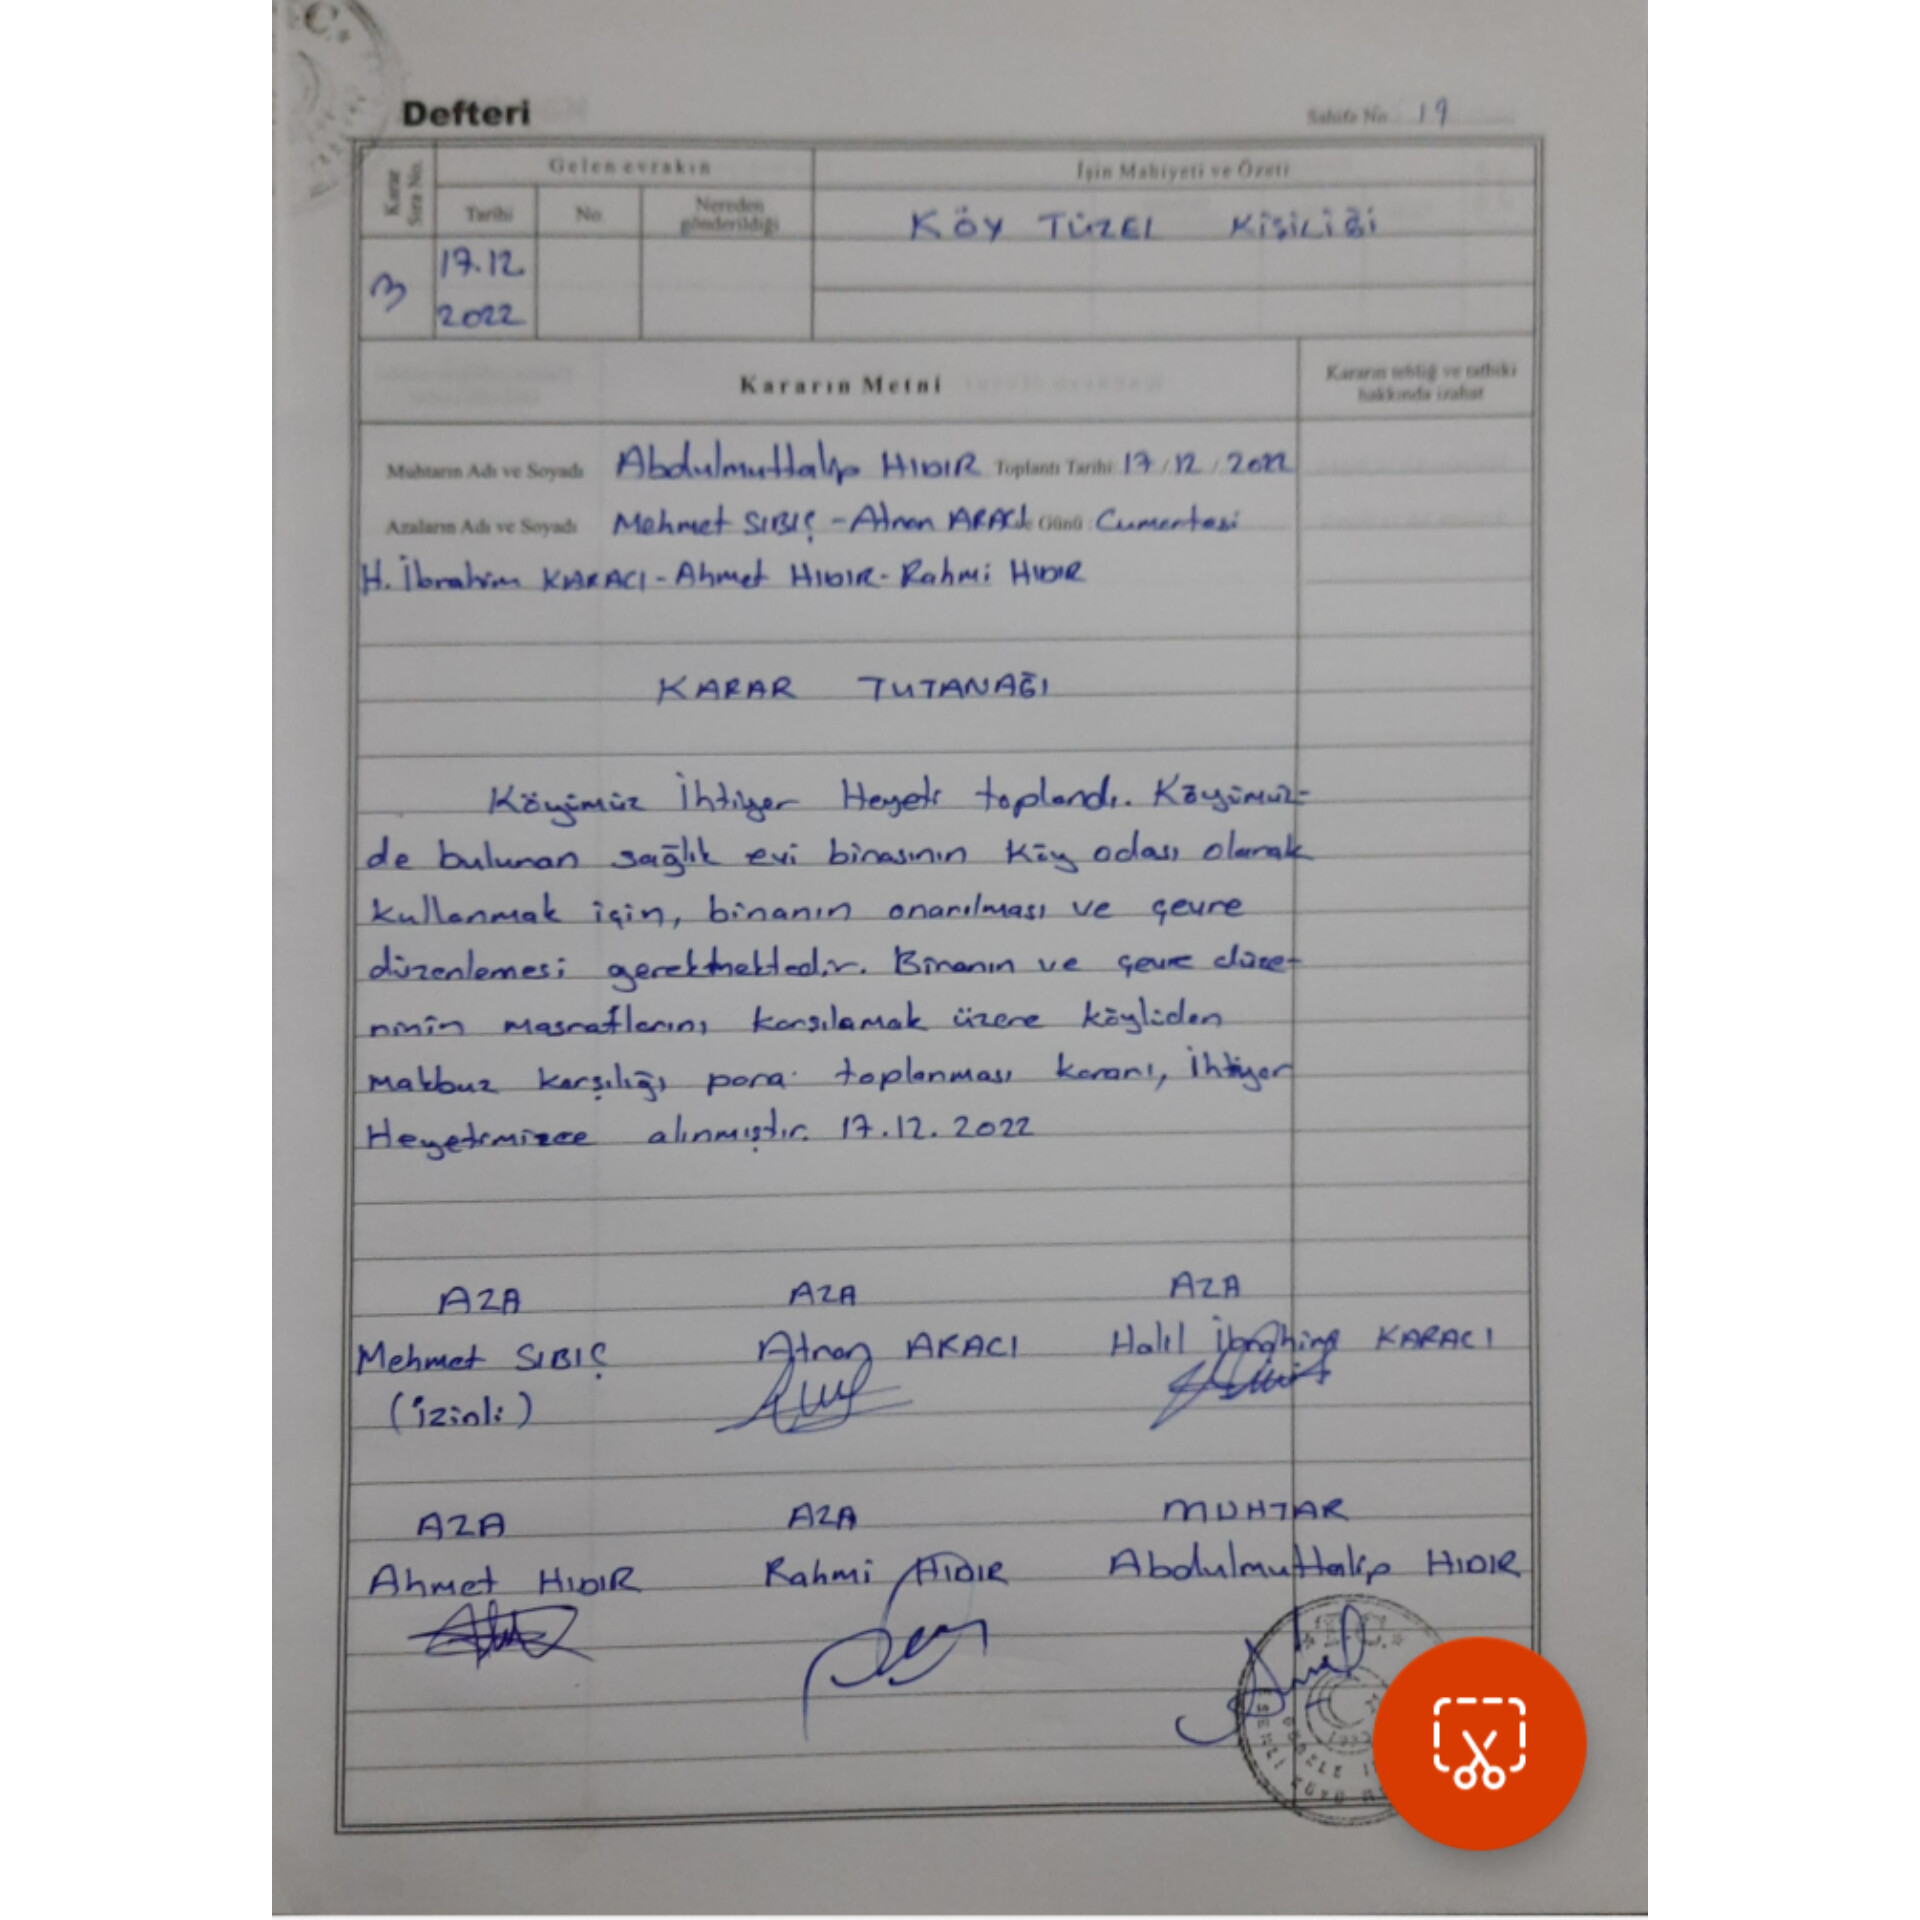 Defteri
Sahife No 19
Karar Sıra No.
Gelen evrakın
İşin Mahiyeti ve Özeti
Tarihi
No.
Nereden gönderildiği
KÖY TÜZEL KİŞİLİĞİ
3
17.12.
2022
Kararın Metni
Kararın tebliğ ve tatbiki
hakkında izahat
Muhtarın Adı ve Soyadı Abdulmuttalip HIDIR Toplantı Tarihi 17/12/2022
Azaların Adı ve Soyadı Mehmet SIBIÇ - Atnan Günü: Cumartesi
H. İbrahim KARACI - Ahmet HIDIR - Rahmi HIDIR
KARAR TUTANAĞI
Köyümüz İhtiyar Heyeti toplandı. Köyümüz-
de bulunan sağlık evi binasının köy odası olarak
kullanmak için, binanın onarılması ve çevre
düzenlemesi gerekmektedir. Binanın ve çevre düze-
ninin masraflarını karşılamak üzere köylüden
makbuz karşılığı para toplanması kararı, İhtiyar
Heyetimizce alınmıştır. 17.12.2022
AZA
AZA
AZA
Mehmet SIBIÇ
Atnan AKACI
Halil İbrahim KARACI
(izinli)
AZA
AZA
MUHTAR
Ahmet HIDIR
Rahmi HIDIR
Abdulmuttalip HIDIR